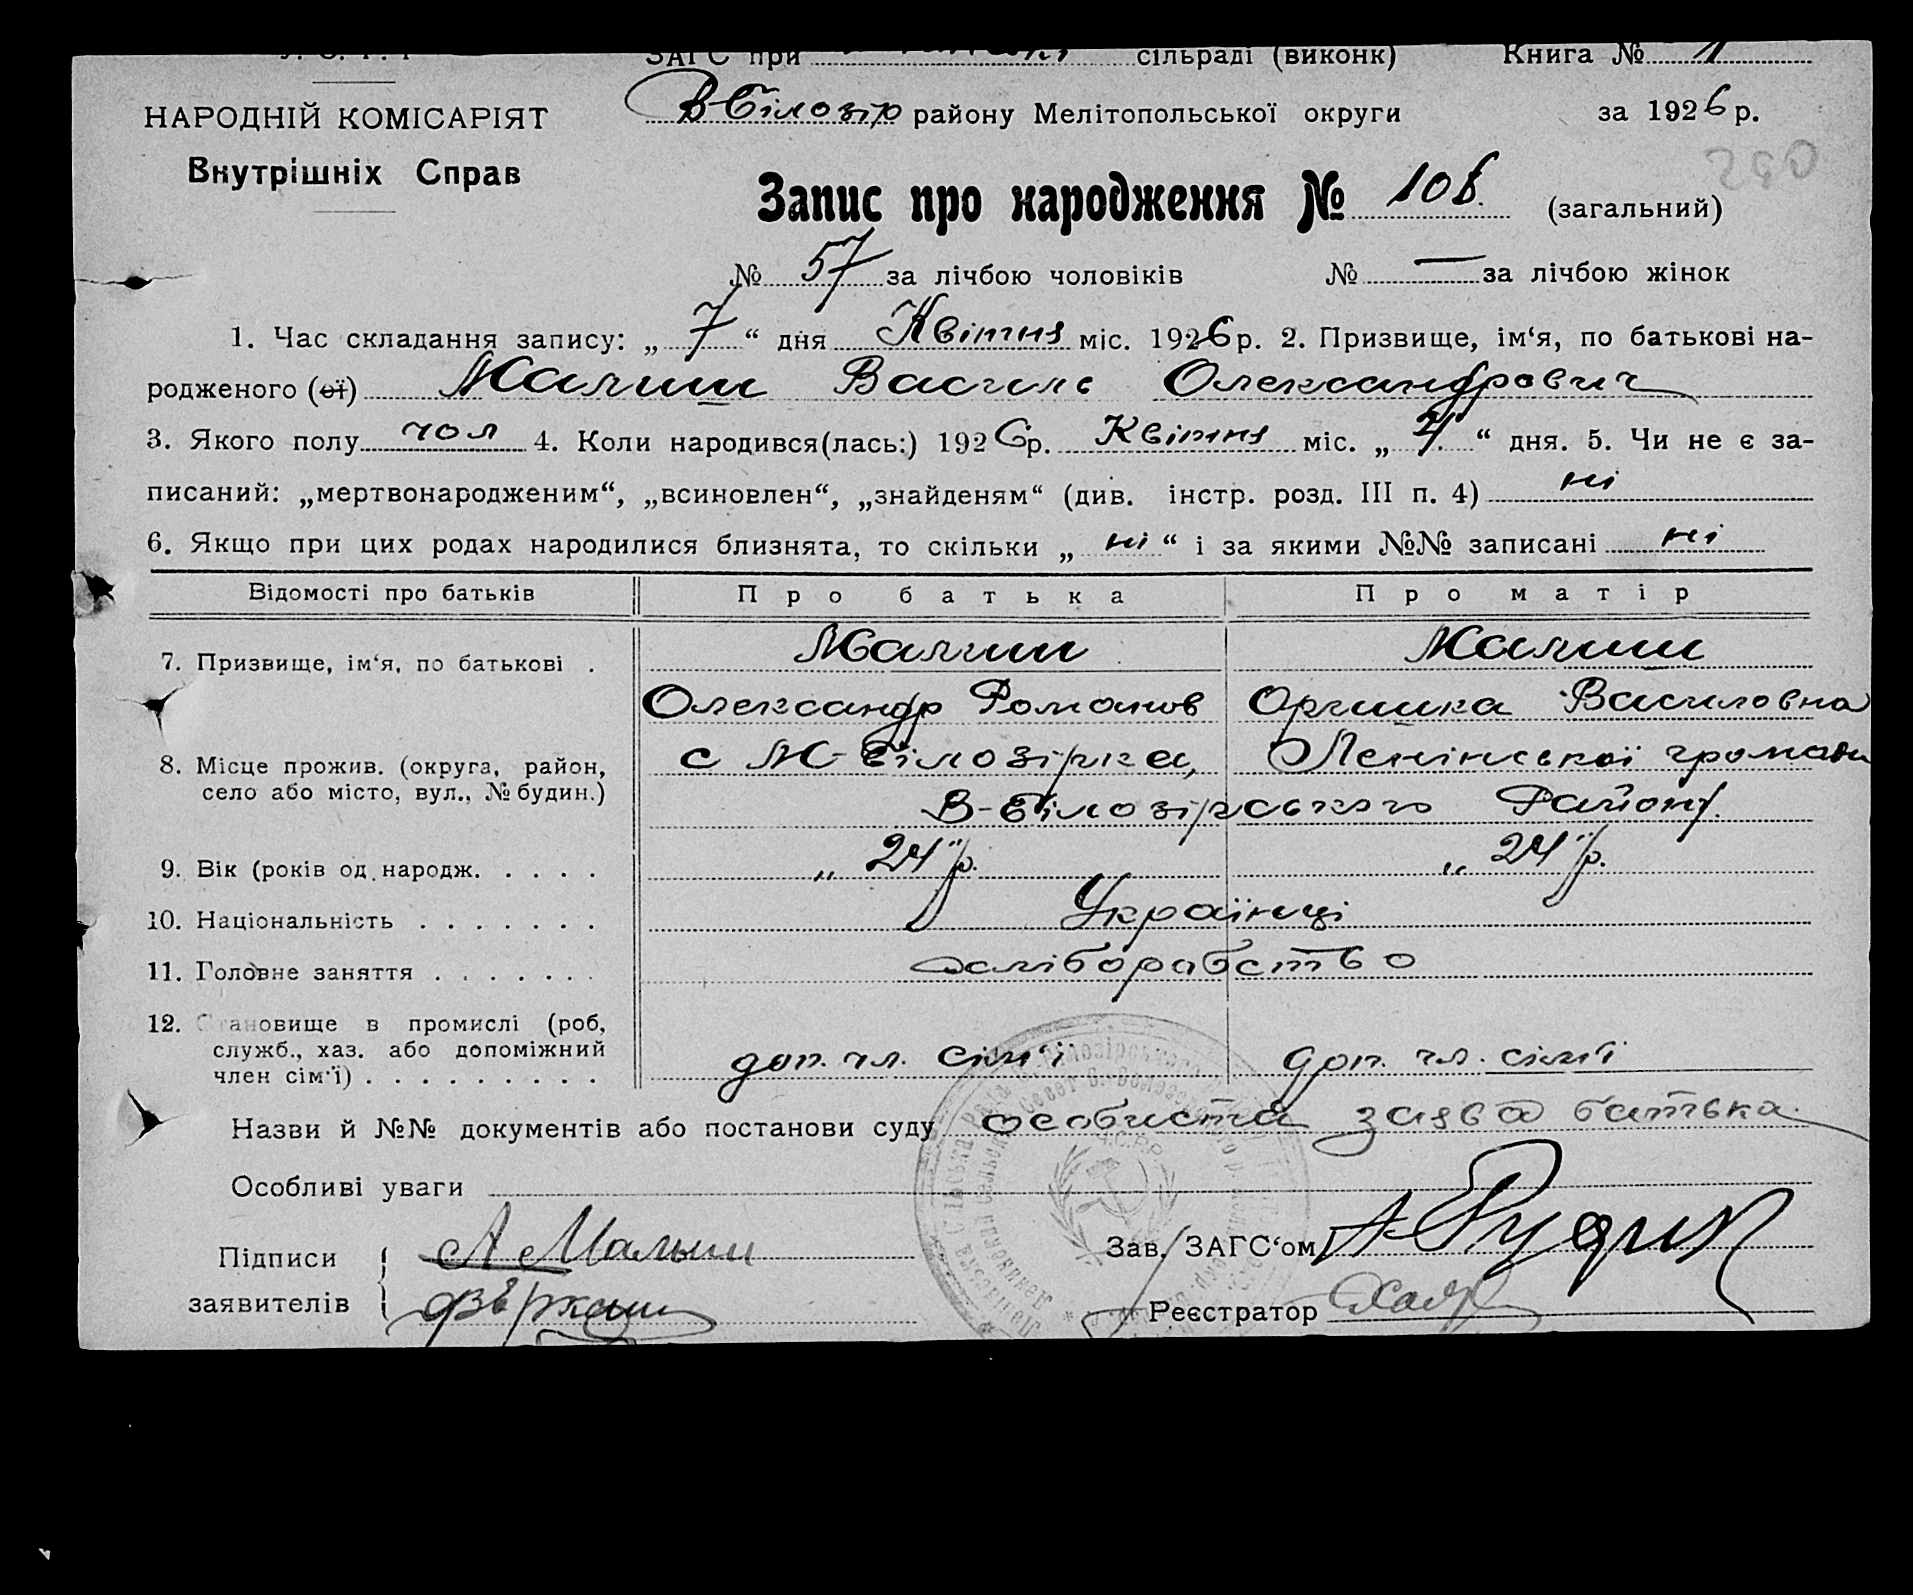 ЗАГС при сільраді (виконк) Книга №
НАРОДНІЙ КОМІСАРІЯТ
Внутрішніх Справ
В-Білозір району Мелітопольської округи за 1926 р.
290
Запис про народження № 108. (загальний)
№ 57 за лічбою чоловіків № — за лічбою жінок
1. Час складання запису: „7“ дня Квітня міс. 1926 р. 2. Призвище, ім‘я, по батькові на-
родженого (ої) Малиш Василь Олександрович
3. Якого полу чол 4. Коли народився(лась:) 1926 р. Квітня міс. „4“ дня. 5. Чи не є за-
писаний: „мертвонародженим“, „всиновлен“, „знайденям“ (див. інстр. розд. III п. 4) ні
6. Якщо при цих родах народилися близнята, то скільки „ні“ і за якими №№ записані ні
Відомості про батьків Про батька Про матір
7. Призвище, ім‘я, по батькові . Малиш Малиш
Олександр Романов Оришка Василовна
8. Місце прожив. (округа, район, с М-Білозірка, Ленінської громади
село або місто, вул., № будин.) В-Білозірського Району.
9. Вік (років од народж. . . . . „ 24 р. „ 24 р.
10. Національність . . . . . . . Українці
11. Головне заняття . . . . . . . хліборабство
12. Становище в промислі (роб,
служб., хаз. або допоміжний
член сім‘ї) . . . . . . . . . доп. чл. сім‘ї доп. чл. сім‘ї
Назви й №№ документів або постанови суду особиста заява батька.
Особливі уваги
Підписи А Малыш Зав. ЗАГС‘ом А Рудик
заявителів Реєстратор